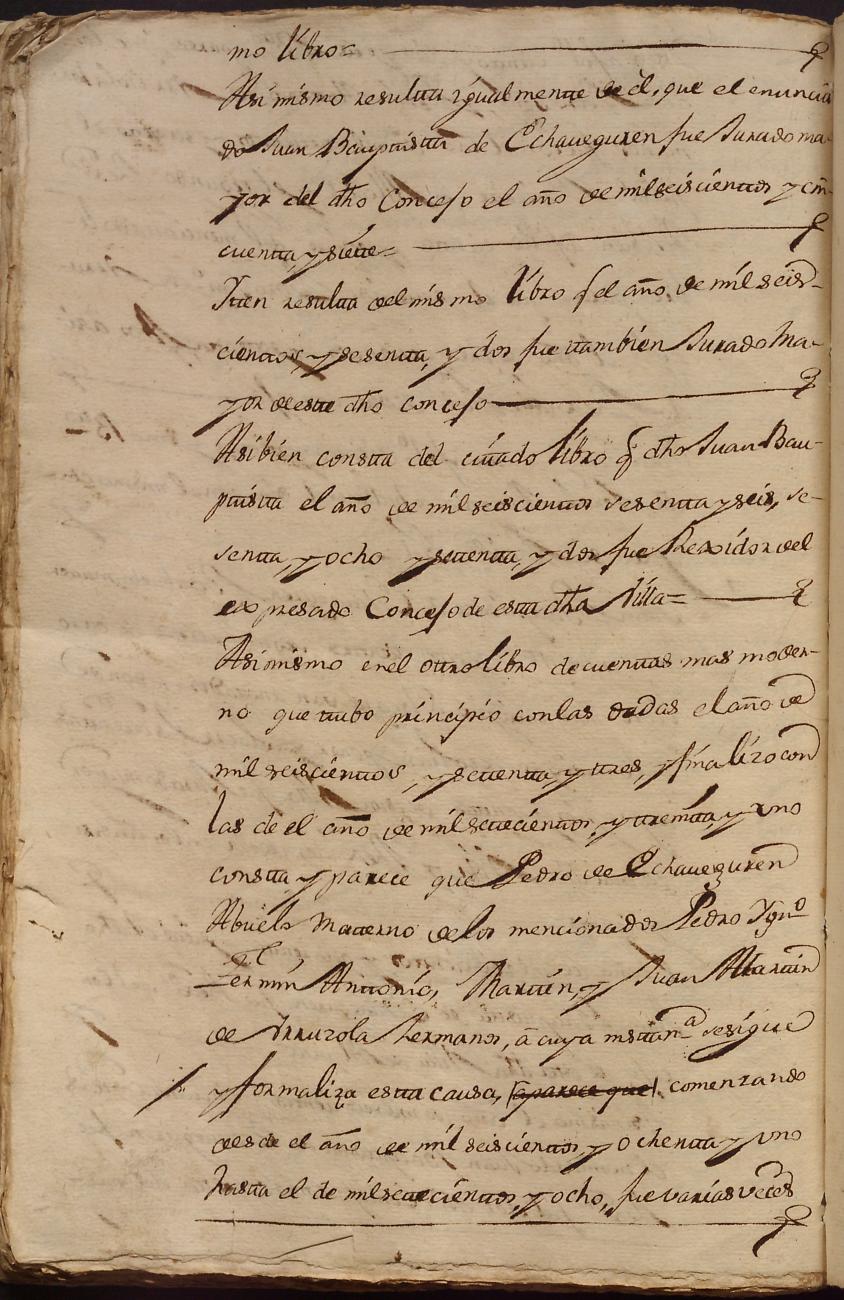 mo libro=
Asi mismo resulta igualmente de el, que el enuncia
do Juan Bauptista de Echaveguren fue Jurado ma-
yor del dho Concejo el año de mil seiscientos y cin-
cuenta, y siete=
Yten resulta del mismo libro q̃ el año de mil seis-
cientos, y sesenta, y dos fue tambien Jurado Ma-
yor de este dho concejo
Asi bien consta del citado libro q̃ dho Juan Bau-
ptista el año de mil seiscientos sesenta y seis, se-
senta, y ocho y setenta, y dos fue Rexidor del
expresado Concejo de esta dha Villa=
Asi mismo en el otro libro de cuentas mas moder-
no que tubo principio con las dadas el año de
mil seiscientos, y setenta, y tres, y finalizo con
las de el año de mil setecientos, y treinta, y uno
consta y parece que Pedro de Echaveguren
Abuelo Materno de los mencionados Pedro Ygnº
Fermin Antonio, Martin, y Juan Martin
de Yrruzola hermanos, â cuya instanª se sigue
y formaliza esta causa, aparece que comenzando
desde el año de mil seiscientos, y ochenta y uno
hasta el de mil setecientos, y ocho, fue varias veces